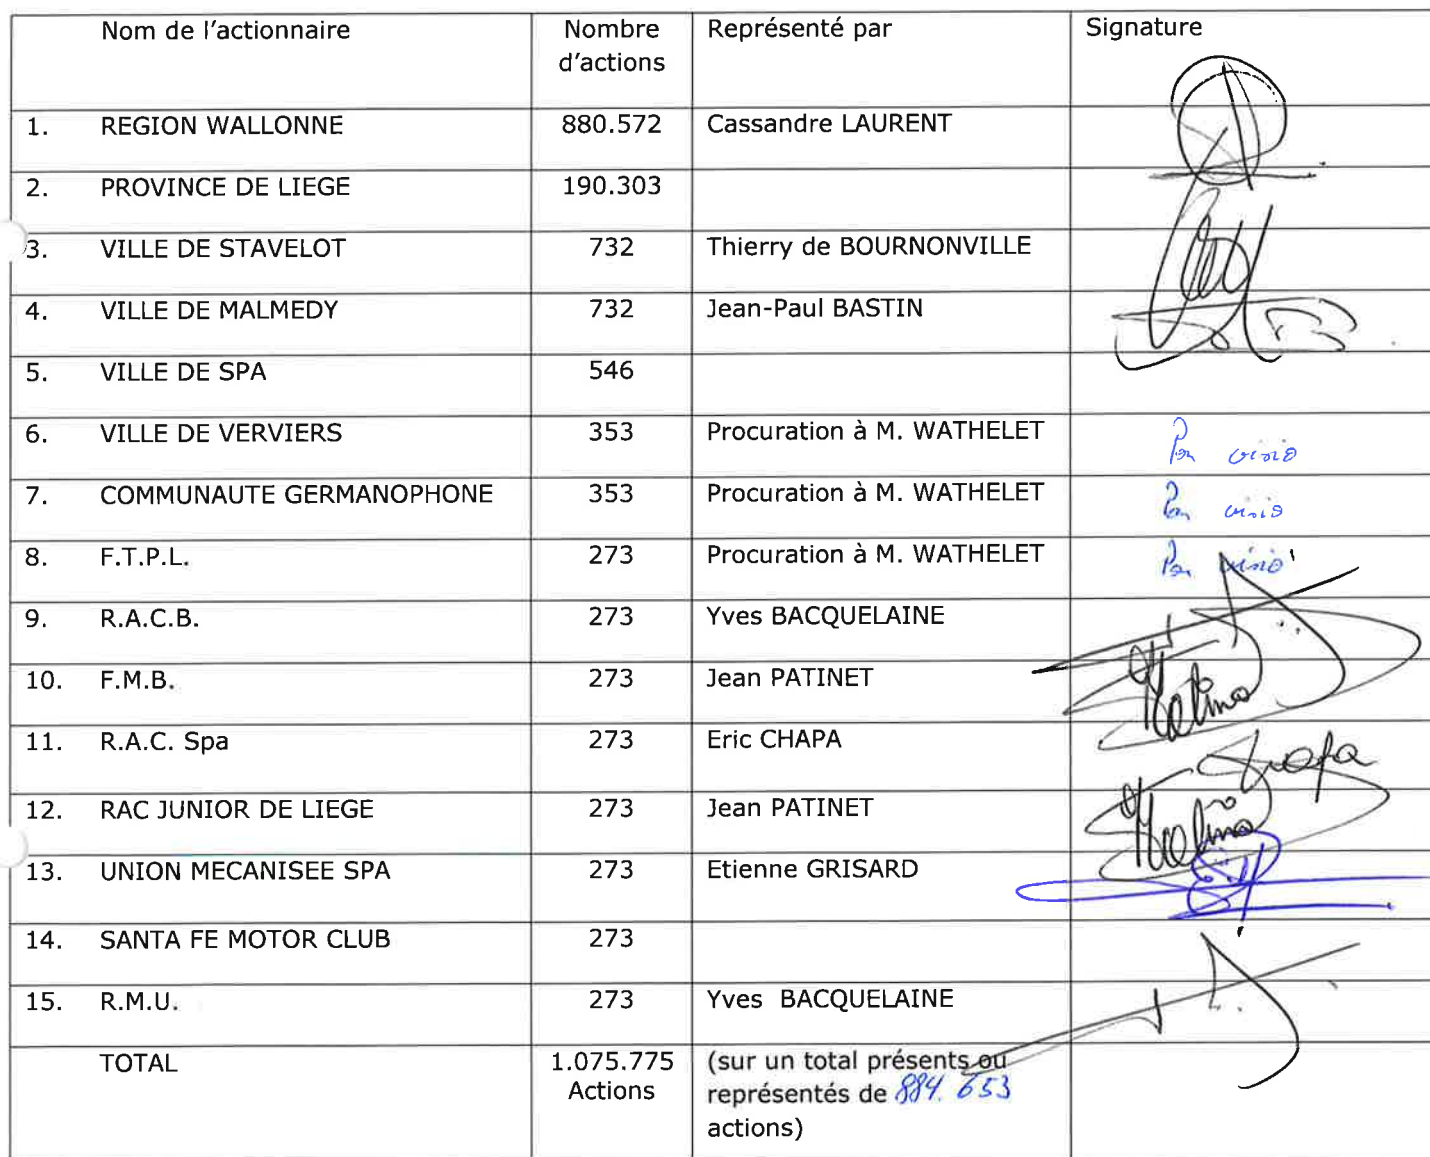 Nom de l'actionnaire Nombre d'actions Représenté par Signature
1. REGION WALLONNE 880.572 Cassandre LAURENT
2. PROVINCE DE LIEGE 190.303
3. VILLE DE STAVELOT 732 Thierry de BOURNONVILLE
4. VILLE DE MALMEDY 732 Jean-Paul BASTIN
5. VILLE DE SPA 546
6. VILLE DE VERVIERS 353 Procuration à M. WATHELET Par visio
7. COMMUNAUTE GERMANOPHONE 353 Procuration à M. WATHELET Par visio
8. F.T.P.L. 273 Procuration à M. WATHELET Par visio
9. R.A.C.B. 273 Yves BACQUELAINE
10. F.M.B. 273 Jean PATINET
11. R.A.C. Spa 273 Eric CHAPA
12. RAC JUNIOR DE LIEGE 273 Jean PATINET
13. UNION MECANISEE SPA 273 Etienne GRISARD
14. SANTA FE MOTOR CLUB 273
15. R.M.U. 273 Yves BACQUELAINE
TOTAL 1.075.775 Actions (sur un total présents ou
représentés de 884.653
actions)